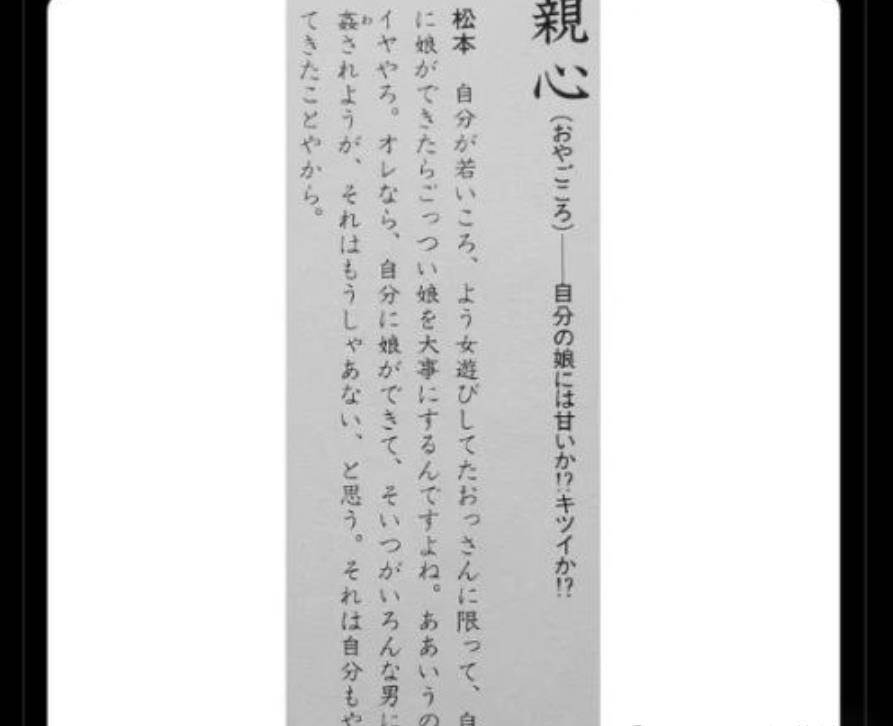 親心（おやごころ）――自分の娘には甘いか!?キツイか!?
松本　自分が若いころ、よう女遊びしてたおっさんに限って、自
に娘ができたらごっつい娘を大事にするんですよね。ああいうの
イヤやろ。オレなら、自分に娘ができて、そいつがいろんな男に
姦されようが、それはもうしゃあない、と思う。それは自分もや
てきたことやから。